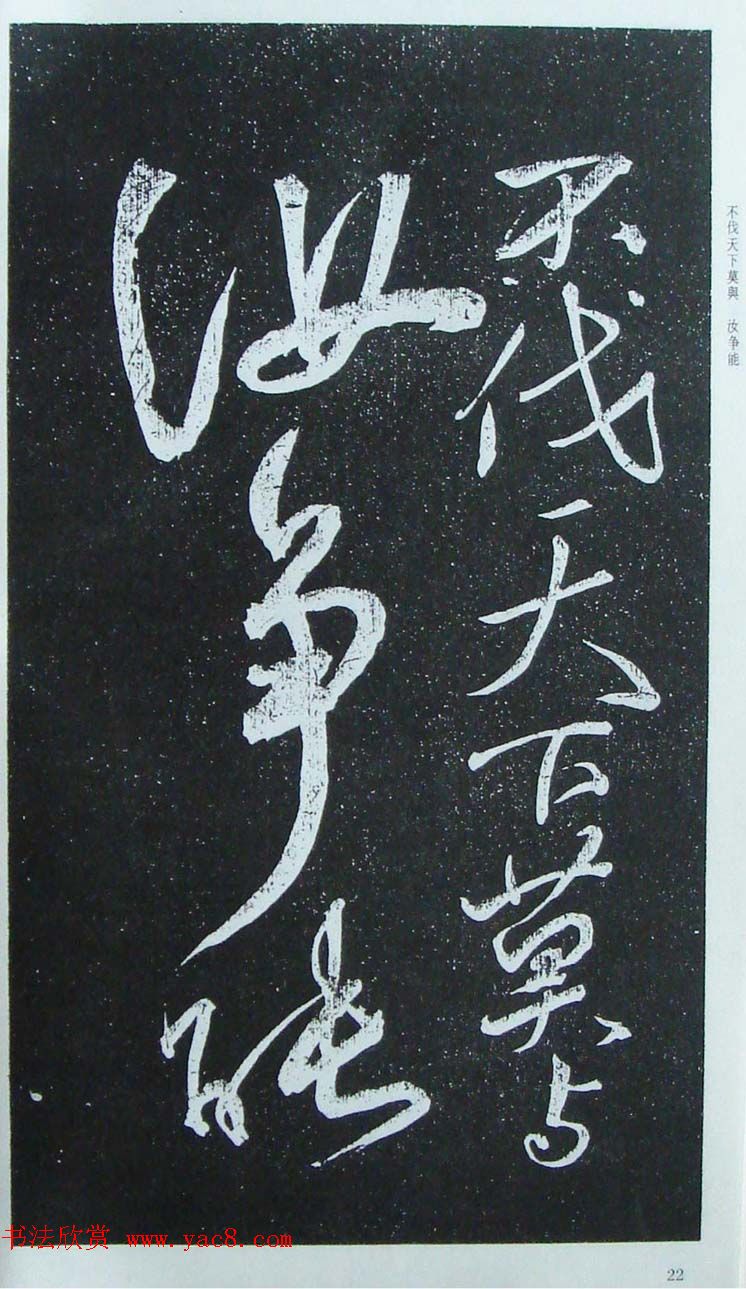 不伐天下莫与
汝争能
不伐天下莫與 汝争能
书法欣赏 www.yac8.com
22